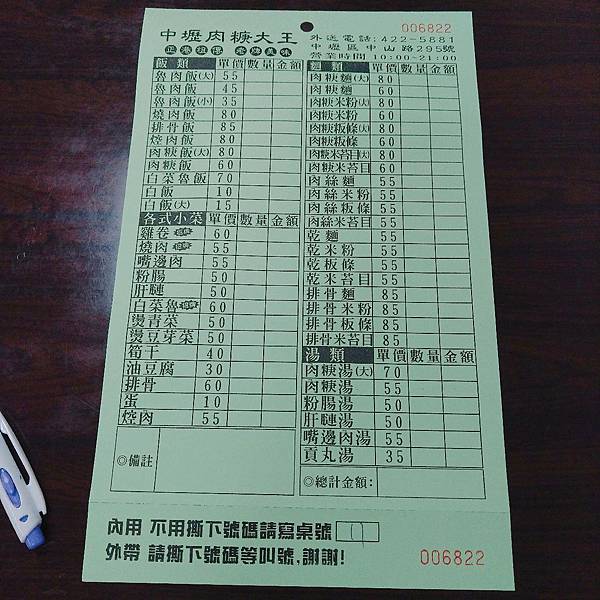 006822
中壢肉羹大王
正港祖傳 老牌美味
外送電話:422-5881
中壢區中山路295號
營業時間 10:00~21:00
飯類 單價 數量 金額
魯肉飯(大) 55
魯肉飯 45
魯肉飯(小) 35
燒肉飯 80
排骨飯 85
焢肉飯 80
肉羹飯(大) 80
肉羹飯 60
白菜魯飯 70
白飯 10
白飯(大) 15
各式小菜 單價 數量 金額
雞卷 60
燒肉 55
嘴邊肉 55
粉腸 50
肝腱 50
白菜魯 60
燙青菜 50
燙豆芽菜 50
筍干 40
油豆腐 30
排骨 60
蛋 10
焢肉 55
◎備註
麵類 單價 數量 金額
肉羹麵(大) 80
肉羹麵 60
肉羹米粉(大) 80
肉羹米粉 60
肉羹粄條(大) 80
肉羹粄條 60
肉羹米苔目(大) 80
肉羹米苔目 60
肉絲麵 55
肉絲米粉 55
肉絲粄條 55
肉絲米苔目 55
乾麵 55
乾米粉 55
乾板條 55
乾米苔目 55
排骨麵 85
排骨米粉 85
排骨板條 85
排骨米苔目 85
湯類 單價 數量 金額
肉羹湯(大) 70
肉羹湯 55
粉腸湯 50
肝腱湯 50
嘴邊肉湯 55
貢丸湯 35
◎總計金額:
內用 不用撕下號碼請寫桌號
外帶 請撕下號碼等叫號,謝謝!
006822